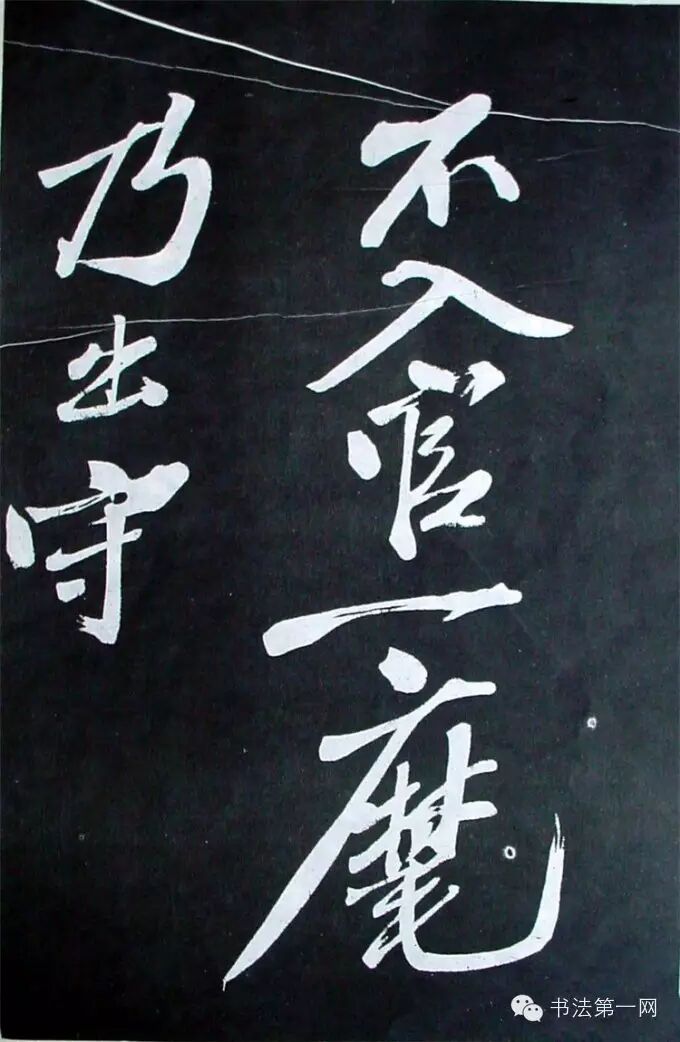 不入官一麾
乃出守
书法第一网